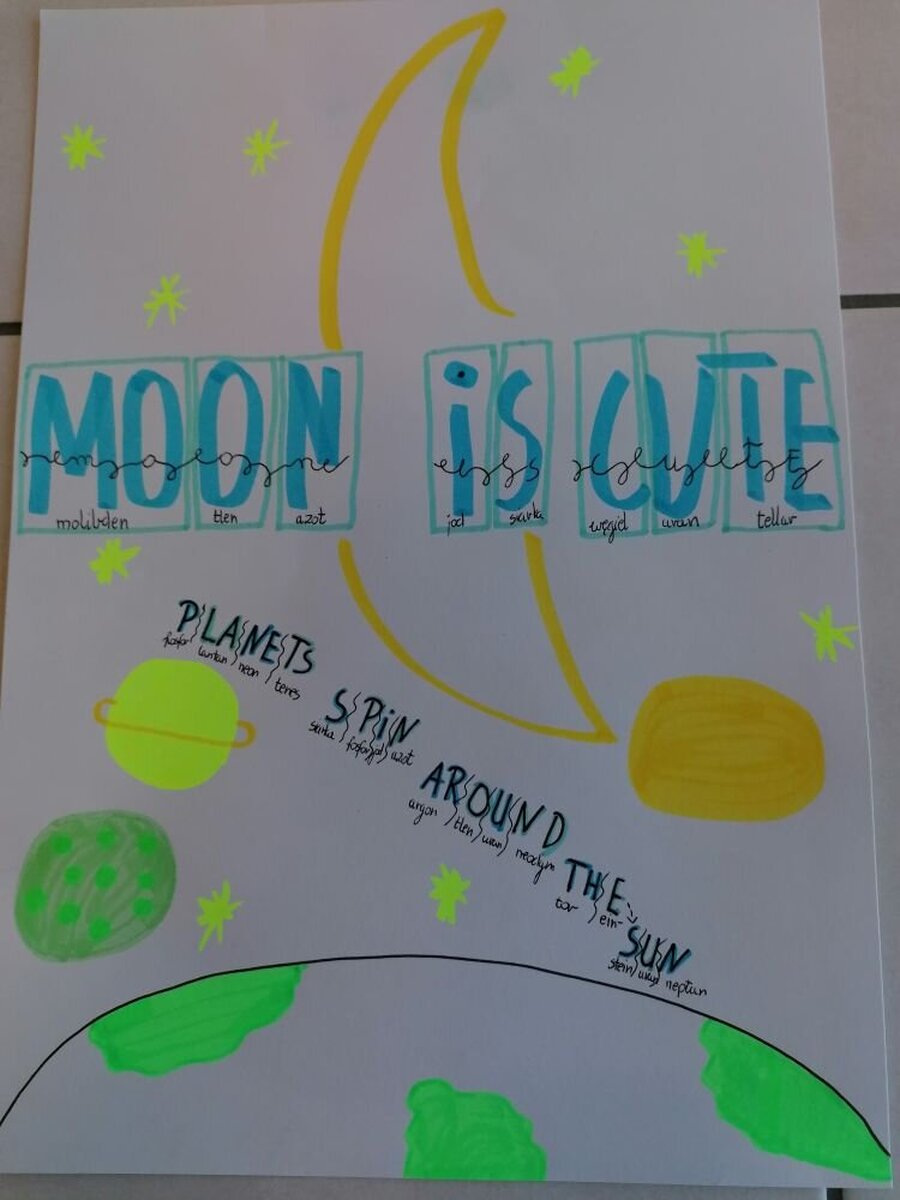 MOON iS CUTE
molibden tlen azot jod siarka węgiel uran tellur
PLANETS
fosfor lantan neon tenes
SPiN
siarka fosfor jod azot
AROUND
argon tlen uran neodym
THE
tor ein-
SUN
stein uran neptun